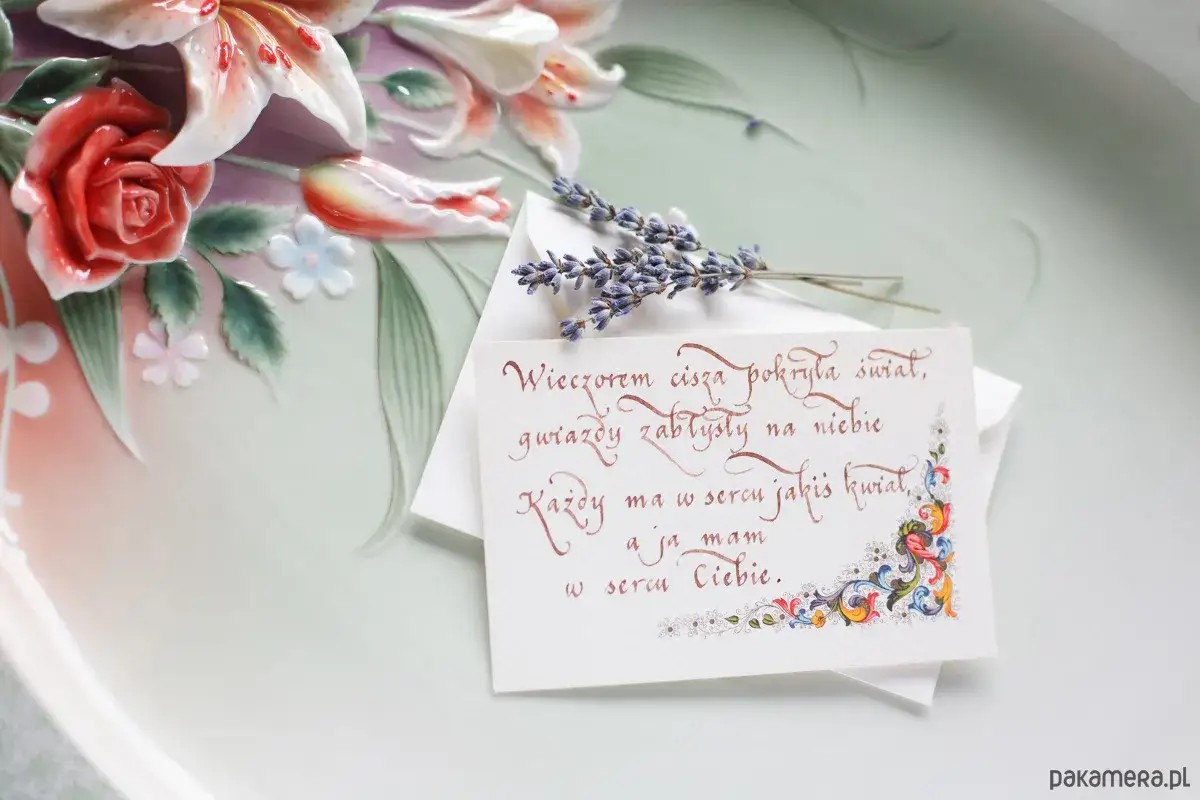 Wieczorem cisza pokryła świat,
gwiazdy zabłysły na niebie
Każdy ma w sercu jakiś kwiat,
a ja mam
w sercu Ciebie.
pakamera.pl